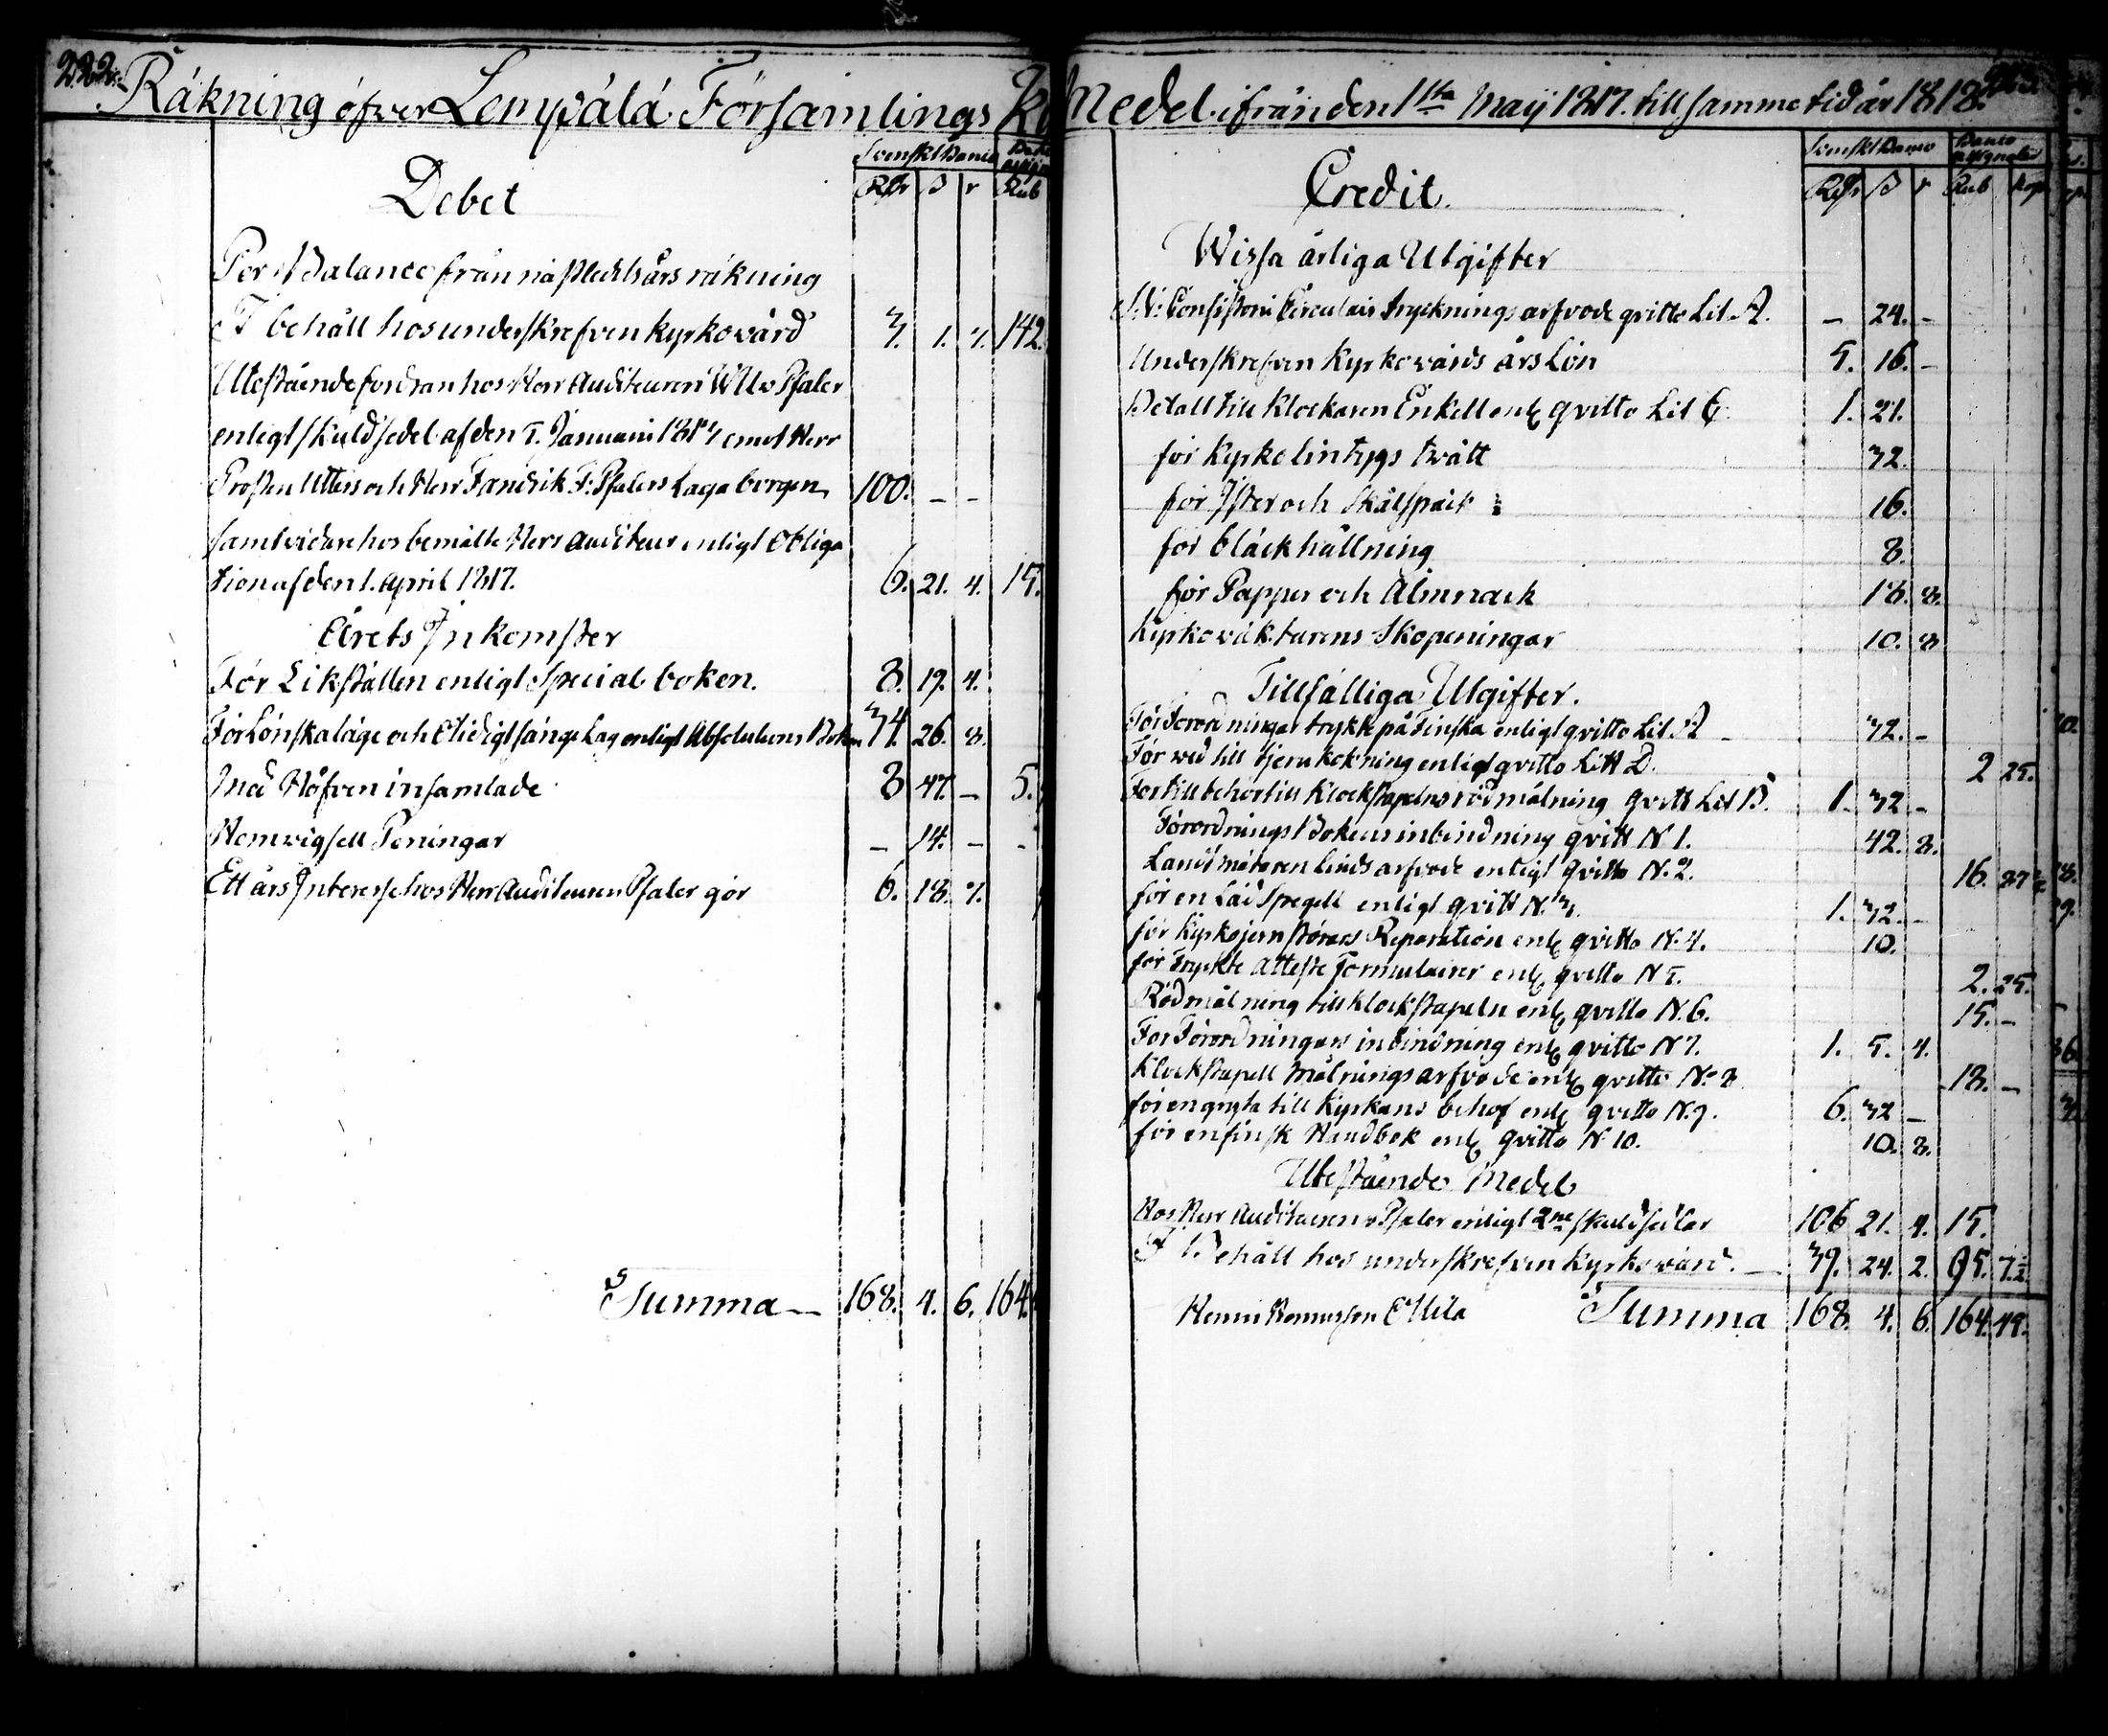 222.
Räkning öfver Lempälä Församlings
Debet
Svenskt Banco
Rdr ß r Rub
Per Balance från näst ledit års räkning
I behåll hos underskrefven Kyrkovärd 3. 1. 7. 142.
Utestående fordran hos Herr Auditeuren W U v Pfaler
enligt skuldsedel af den 5. Januarii 1817 emot Herr
Prosten Utters och Herr Fendrik F: Pfalers Laga borgen 100. – –
samt vidare hos bemälte Herr Auditeur enligt Obliga
tion af den 1. April 1817. 6. 21. 4. 15.
Årets Inkomster
För Likställen enligt Special boken. 8. 19. 4.
För Lönskaläge och Otidigt sänge Lag enligt Absolutions Boken 34. 26. 8.
Med Håfven insamlade 8 47. – 5.
Hemvigsell Peningar – 14. – -
Ett års Interesse hos Herr Auditeuren Pfaler gör 6. 18. 7.
Summa – 168. 4. 6. 164.
Medel ifrån den 1sta Maij 1817. till samma tid år 1818.
Credit.
Svenskt Banco Banco Assignater
Rdr ß r Rub Kop
Wissa årliga Utgifter
Consistorii Circulair trycknings arfvode qvitto Lit. A. – 24. –
Underskrefven Kyrkovärds års Lön 5. 16. –
Betalt till Klockaren Enkell enl. qvitto Lit C. 1. 21.
för Kyrko lintygs tvätt 32.
för Ister och Skälspäck 16.
för bläckhållning 8.
för Papper och Almnach 18. 8.
Kyrkováktarens Skopeningar 10. 8
Tillfälliga Utgifter.
För Förordningar tryckt på Finska enligt qvitto Lit. A – 32. –
För ved till tjerukokning enligt qvitto Litt D. 2 25.
För tillbehör till Klockstapelns rödmålning qvitt Lit B. 1. 32 –
Förordnings Bokens inbindning qvitt N 1. 42. 8.
Landtmätaren Linds arfvode enligt qvitto N. 2. 16.
för en Låd Spegell enligt qvitt N. 3. 1. 32. –
för Kyrkojern störars Reparation enl. qvitto N. 4. 10.
för Tryckte Atteste Formulairer enl. qvitto N 5. 2. 25.
Rödmålning till Klockstapeln enl. qvitto N. 6. 15. –
För Förordningars inbindning enl. qvitto N 7. 1. 5. 4.
Klockstapell Målnings arfvode enl. qvitto No 8 18. –
för en gryta till Kyrkans behof enl. qvitto N. 9. 6. 32 –
för en finsk Handbok enl. qvitto N 10. 10. 8.
Utestående Medel
Hos Herr Auditeuren v Pfaler enligt 2ne skuldsedlar 106 21. 4. 15.
I Behåll hos underskrefven Kyrkovärd. – 39. 24. 2. 95. 7 1/2
Summa 168. 4. 6. 164. 49.